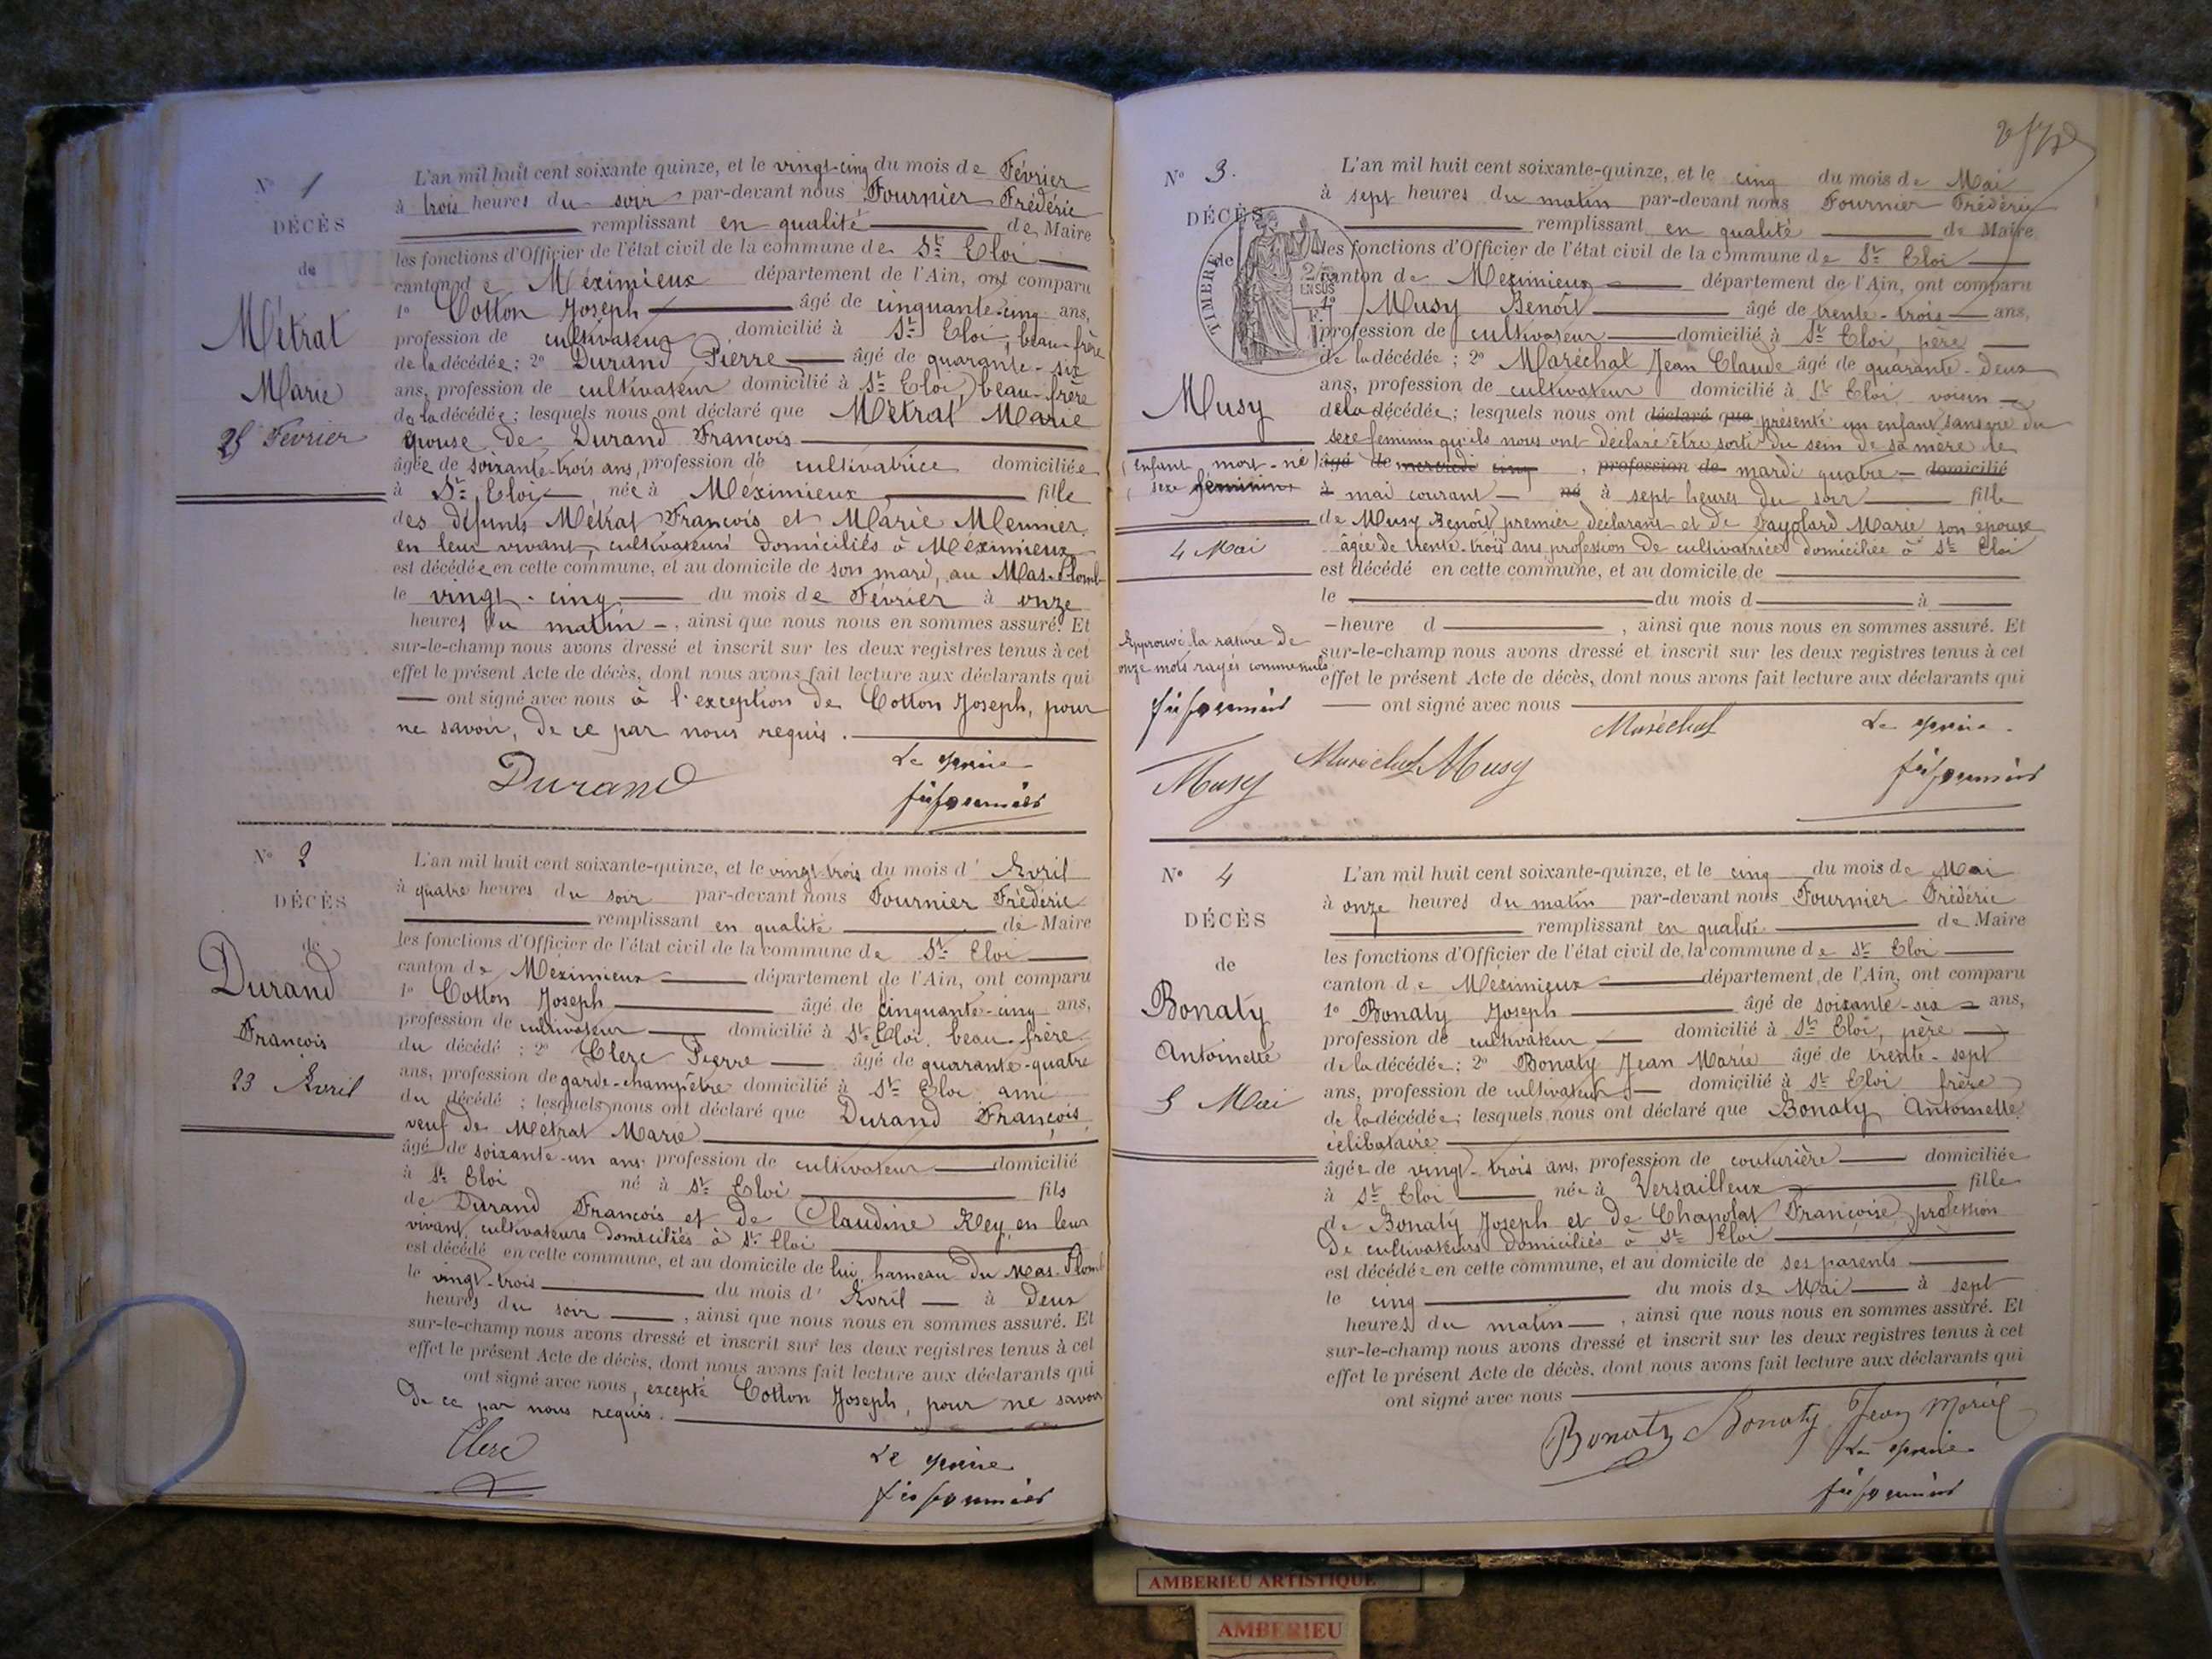 N° 1
DÉCÈS
de
Métrat
Marie
25 Février
L'an mil huit cent soixante quinze, et le vingt-cinq du mois de Février
à trois heures du soir par-devant nous Fournier Frédéric
remplissant en qualité de Maire
les fonctions d'Officier de l'état civil de la commune de St Eloi
canton de Méximieux département de l'Ain, ont comparu
1° Cotton Joseph âgé de cinquante-cinq ans,
profession de cultivateur domicilié à St Eloi, beau-frère
de la décédée ; 2° Durand Pierre âgé de quarante-six
ans, profession de cultivateur domicilié à St Eloi, beau-frère
de la décédée ; lesquels nous ont déclaré que Métrat Marie
épouse de Durand François
âgée de soixante-trois ans, profession de cultivatrice domiciliée
à St Eloi, née à Méximieux fille
des défunts Métrat François et Marie Meunier
en leur vivant, cultivateurs domiciliés à Méximieux
est décédée en cette commune, et au domicile de son mari, au Mas-Plomb
le vingt-cinq du mois de Février à onze
heures du matin, ainsi que nous nous en sommes assuré. Et
sur-le-champ nous avons dressé et inscrit sur les deux registres tenus à cet
effet le présent Acte de décès, dont nous avons fait lecture aux déclarants qui
ont signé avec nous à l'exception de Cotton Joseph, pour
ne savoir, de ce par nous requis.
Durand
Le maire
N° 2
DÉCÈS
de
Durand
François
23 Avril
L'an mil huit cent soixante-quinze, et le vingt-trois du mois d'Avril
à quatre heures du soir par-devant nous Fournier Frédéric
remplissant en qualité de Maire
les fonctions d'Officier de l'état civil de la commune de St Eloi
canton de Méximieux département de l'Ain, ont comparu
1° Cotton Joseph âgé de cinquante-cinq ans,
profession de cultivateur domicilié à St Eloi, beau-frère
du décédé ; 2° Clerc Pierre âgé de quarante-quatre
ans, profession de garde-champêtre domicilié à St Eloi ami
du décédé ; lesquels nous ont déclaré que Durand François
veuf de Métrat Marie
âgé de soixante-un ans profession de cultivateur domicilié
à St Eloi né à St Eloi fils
de Durand François et de Claudine Rey, en leur
vivant, cultivateurs domiciliés à St Eloi
est décédé en cette commune, et au domicile de lui, hameau du Mas-Plomb
le vingt-trois du mois d'Avril à deux
heures du soir, ainsi que nous nous en sommes assuré. Et
sur-le-champ nous avons dressé et inscrit sur les deux registres tenus à cet
effet le présent Acte de décès, dont nous avons fait lecture aux déclarants qui
ont signé avec nous, excepté Cotton Joseph, pour ne savoir
de ce par nous requis.
Clerc
Le maire
N° 3.
DÉCÈS
de
TIMBRE
Musy
(enfant mort-né)
(sexe féminin
4 Mai
Approuvé la rature de
onze mots rayés comme nuls
L'an mil huit cent soixante-quinze, et le cinq du mois de Mai
à sept heures du matin par-devant nous Fournier Frédéric
remplissant en qualité de Maire
les fonctions d'Officier de l'état civil de la commune de St Eloi
canton de Meximieux département de l'Ain, ont comparu
1° Musy Benoît âgé de trente-trois ans,
profession de cultivateur domicilié à St Eloi, père
de la décédée ; 2° Maréchal Jean Claude âgé de quarante-deux
ans, profession de cultivateur domicilié à St Eloi voisin
de la décédée ; lesquels nous ont déclaré que présenté un enfant sans vie du
sexe féminin qu'ils nous ont déclaré être sorti du sein de sa mère le
âgé de mercredi cinq, profession de mardi quatre domicilié
à mai courant né à sept heures du soir fille
de Musy Benoît premier déclarant et de Marie son épouse
âgée de trente-trois ans profession de cultivatrice domiciliée à St Eloi
est décédé en cette commune, et au domicile de
le du mois d à
heure d , ainsi que nous nous en sommes assuré. Et
sur-le-champ nous avons dressé et inscrit sur les deux registres tenus à cet
effet le présent Acte de décès, dont nous avons fait lecture aux déclarants qui
ont signé avec nous
Musy Maréchal Musy Maréchal Le maire
N° 4
DÉCÈS
de
Bonaty
Antoinette
5 Mai
L'an mil huit cent soixante-quinze, et le cinq du mois de Mai
à onze heures du matin par-devant nous Fournier Frédéric
remplissant en qualité de Maire
les fonctions d'Officier de l'état civil de la commune de St Eloi
canton de Méximieux département de l'Ain, ont comparu
1° Bonaty Joseph âgé de soixante-six ans,
profession de cultivateur domicilié à St Eloi, père
de la décédée ; 2° Bonaty Jean Marie âgé de trente-sept
ans, profession de cultivateur domicilié à St Eloi frère
de la décédée ; lesquels nous ont déclaré que Bonaty Antoinette
célibataire
âgée de vingt-trois ans, profession de couturière domiciliée
à St Eloi née à Versailleux fille
de Bonaty Joseph et de Chapolat Françoise profession
de cultivateurs domiciliés à St Eloi
est décédée en cette commune, et au domicile de ses parents
le cinq du mois de Mai à sept
heures du matin, ainsi que nous nous en sommes assuré. Et
sur-le-champ nous avons dressé et inscrit sur les deux registres tenus à cet
effet le présent Acte de décès, dont nous avons fait lecture aux déclarants qui
ont signé avec nous
Bonaty Bonaty Jean Marie
Le maire
AMBERIEU ARTISTIQUE
AMBERIEU